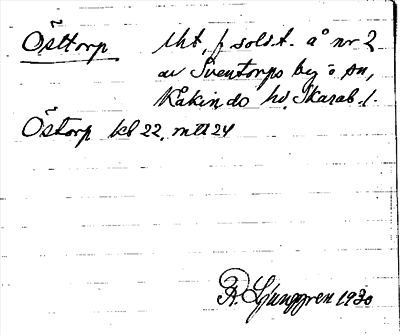 Östtorp lht, f soldt. å nr 2
av Sventorps by o. sn,
Kåkinds hd, Skarab. l.
Östorp kb 22, mtl 24
R. Ljunggren 1930